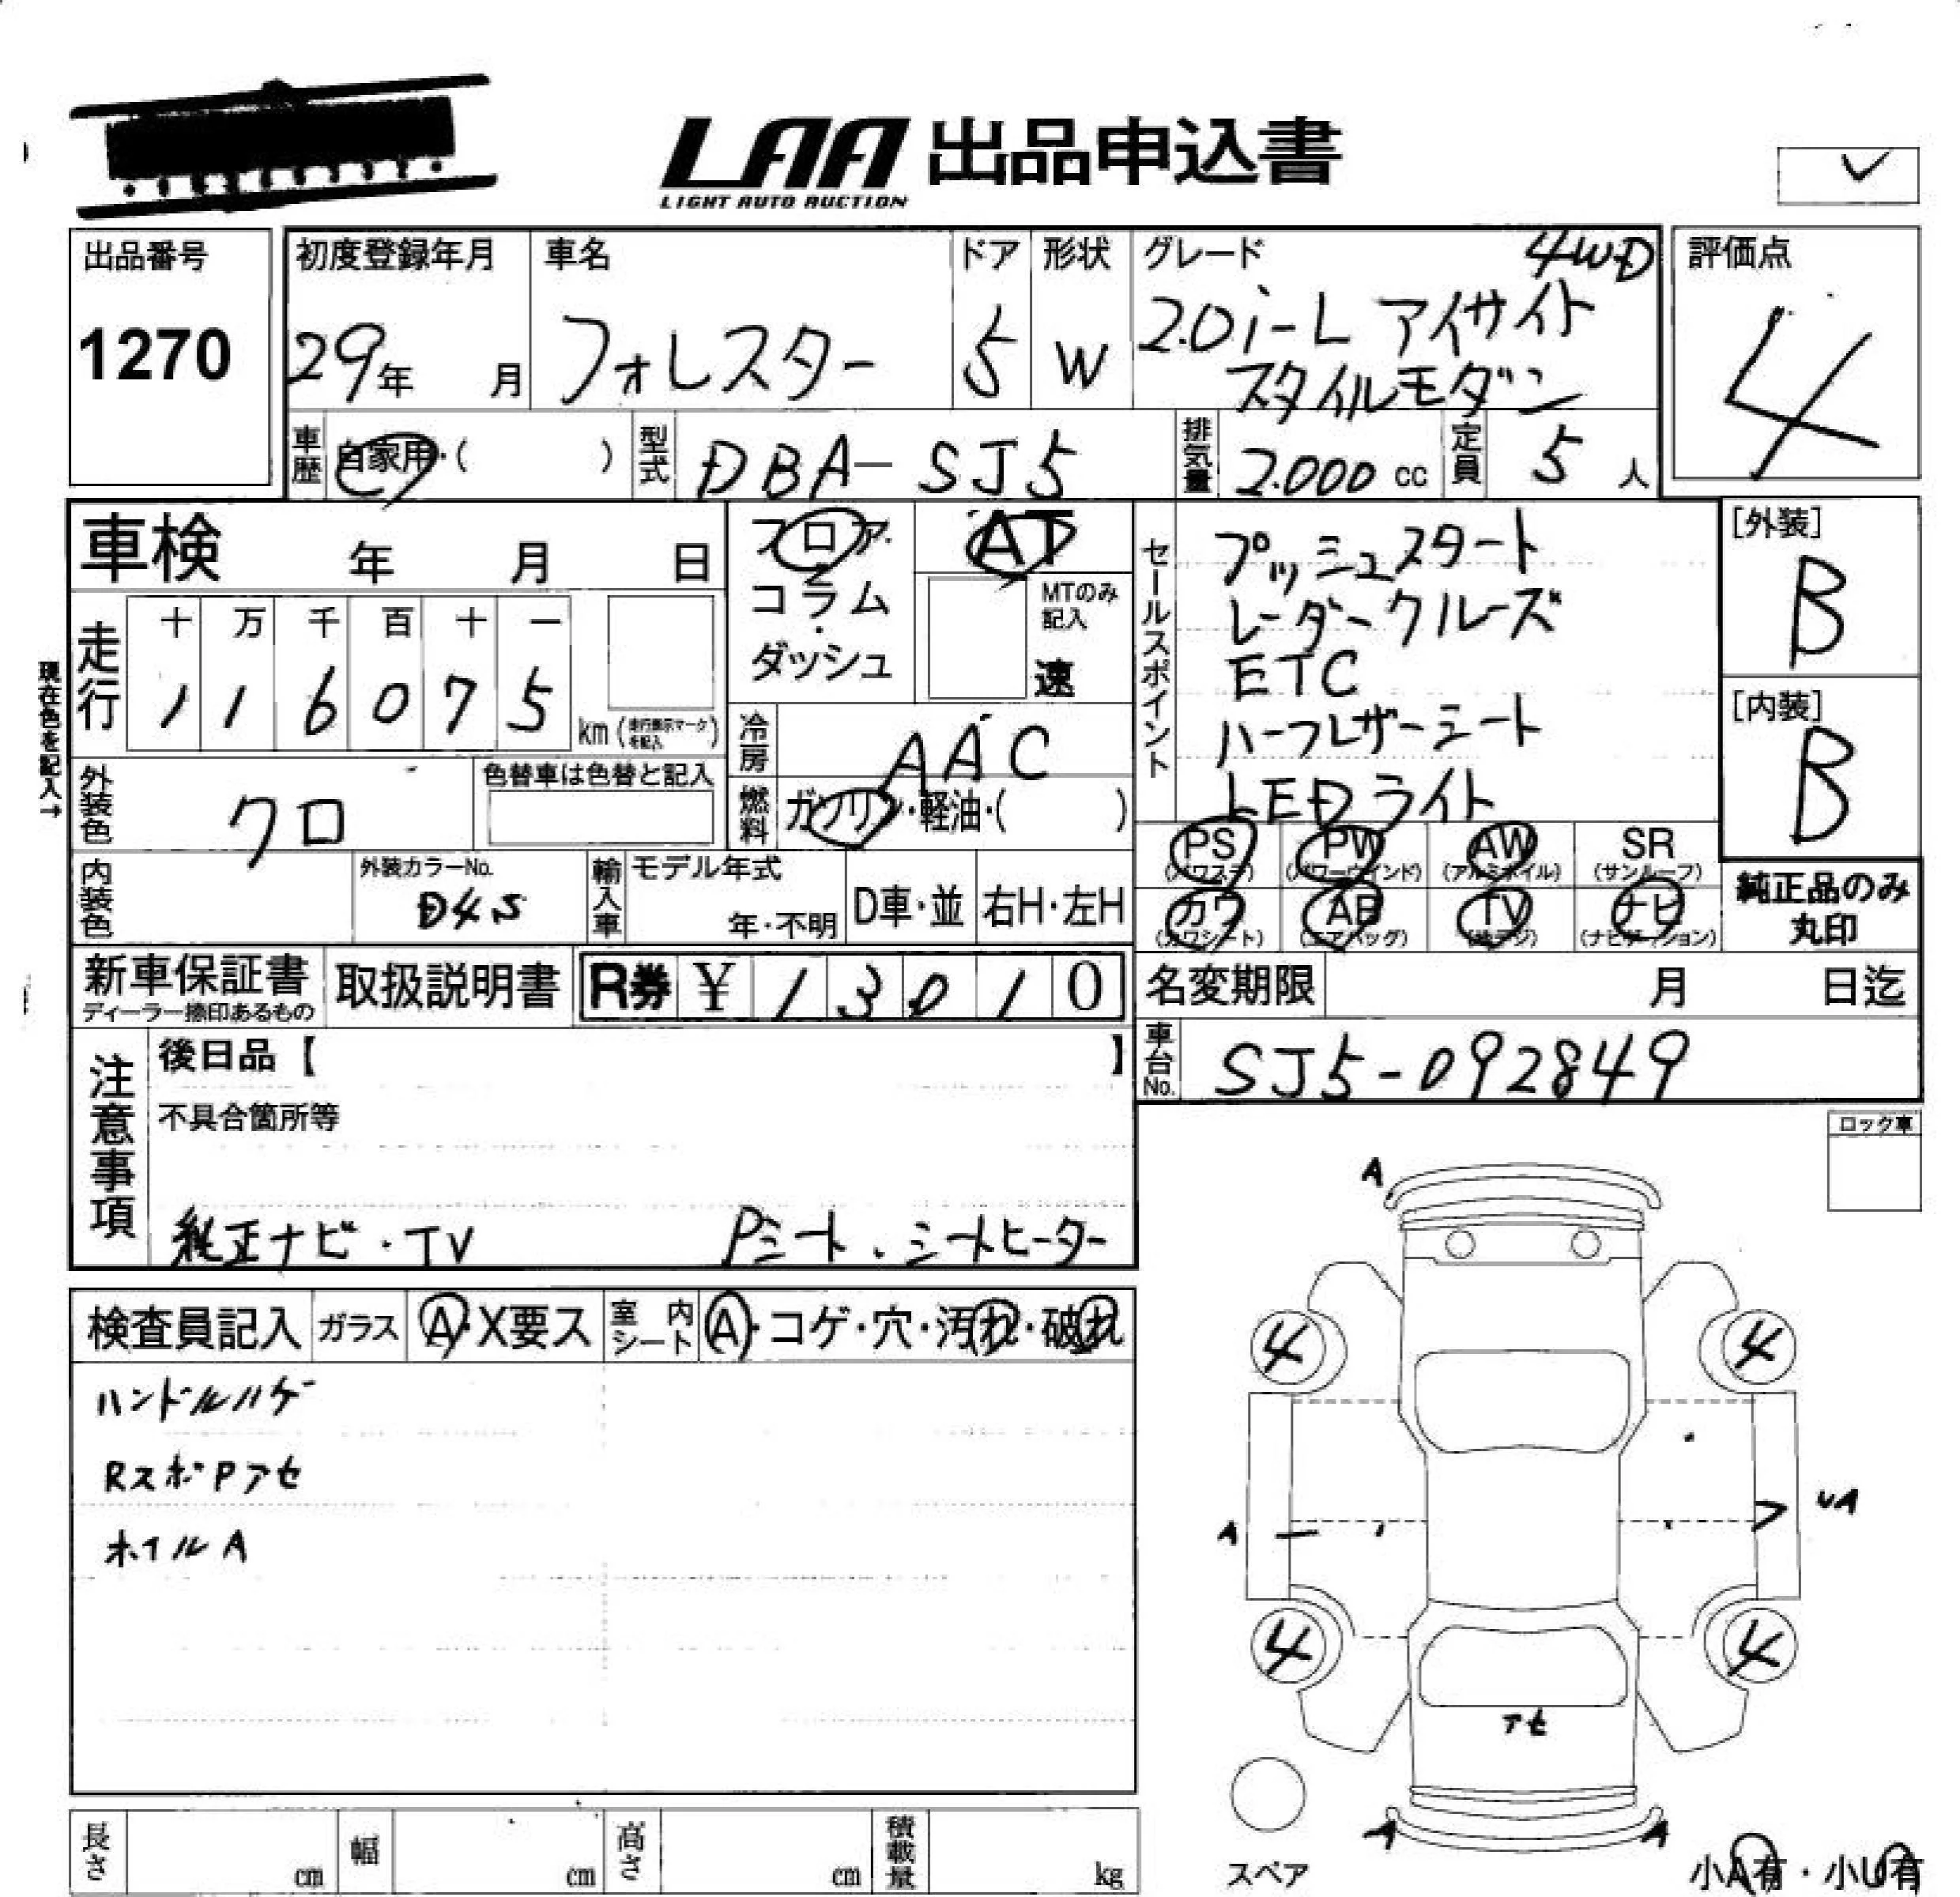 LAA 出品申込書
LIGHT AUTO AUCTION
出品番号 初度登録年月 車名 ドア 形状 グレード 4WD 評価点
1270 29年 月 フォレスター 5 W 2.0i-L アイサイト 4
スタイルモダン
車歴 自家用・( ) 型式 DBA-SJ5 排気量 2.000 cc 定員 5 人
車検 年 月 日 フロア AT セールスポイント プッシュスタート [外装]
コラム MTのみ記入 レーダークルーズ B
走行 十 万 千 百 十 一
1 1 6 0 7 5 km (走行表示マークを記入) ・ダッシュ 速 ETC [内装]
現在色を記入→
冷房 AAC ハーフレザーシート B
外装色 クロ 色替車は色替と記入 燃料 ガソリン・軽油・( ) LEDライト
PS (パワステ) PW (パワーウインド) AW (アルミホイル) SR (サンルーフ)
内装色 外装カラーNo. D4S 輸入車 モデル年式 年・不明 D車・並 右H・左H
カワ (カワシート) AB (エアバッグ) TV (地デジ) ナビ (ナビゲーション) 純正品のみ丸印
新車保証書 取扱説明書 R券 ¥ 1 3 0 1 0 名変期限 月 日迄
ディーラー捺印あるもの
注意事項 後日品【 】 車台No. SJ5-092849
不具合箇所等
ロック車
純正ナビ・TV Pシート、シートヒーター
検査員記入 ガラス A・X要ス 室内シート A・コゲ・穴・汚れ・破れ
ハンドルハゲ
RスポPアセ
ホイルA
A
4 4
A UA
4 4
アセ
A A
スペア
小A有・小U有
長さ cm 幅 cm 高さ cm 積載量 kg